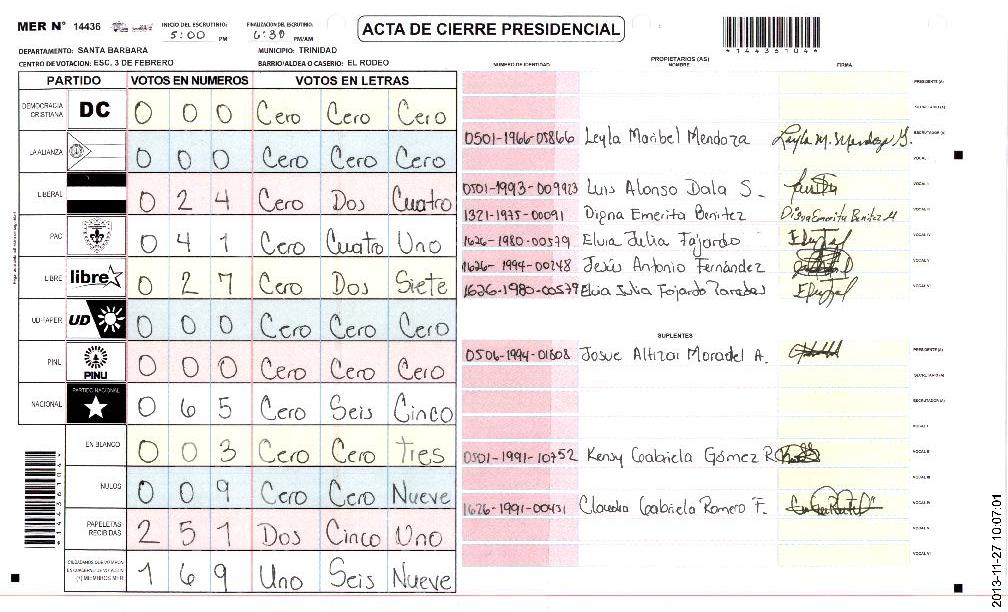 MER N° 14436 INICIO DEL ESCRUTINIO: 5:00 PM FINALIZACION DEL ESCRUTINIO: 6:30 PM/AM ACTA DE CIERRE PRESIDENCIAL *14436104*
DEPARTAMENTO: SANTA BARBARA MUNICIPIO: TRINIDAD
CENTRO DE VOTACION: ESC, 3 DE FEBRERO BARRIO/ALDEA O CASERIO: EL RODEO
PARTIDO VOTOS EN NUMEROS VOTOS EN LETRAS
DEMOCRACIA CRISTIANA DC 0 0 0 Cero Cero Cero
LA ALIANZA 0 0 0 Cero Cero Cero
LIBERAL 0 2 4 Cero Dos Cuatro
PAC 0 4 1 Cero Cuatro Uno
LIBRE libre 0 2 7 Cero Dos Siete
UD-FAPER UD 0 0 0 Cero Cero Cero
PINU PINU 0 0 0 Cero Cero Cero
NACIONAL PARTIDO NACIONAL 0 6 5 Cero Seis Cinco
EN BLANCO 0 0 3 Cero Cero tres
NULOS 0 0 9 Cero Cero Nueve
PAPELETAS RECIBIDAS 2 5 1 Dos Cinco Uno
CIUDADANOS QUE VOTARON EN CUADERNO DE VOTACION (*) MIEMBROS MER 1 6 9 Uno Seis Nueve
*14436104*
NUMERO DE IDENTIDAD PROPIETARIOS (AS) NOMBRE FIRMA
PRESIDENTE (A)
SECRETARIO (A)
0501-1966-05866 Leyla Maribel Mendoza Leyla M. Mendoza G. ESCRUTADOR (A)
VOCAL I
0501-1993-009923 Luis Alonso Dala S. VOCAL II
1321-1975-00091 Digna Emerita Benitez Digna Emerita Benitez M
1626-1980-00579 Elvia Julia Fajardo VOCAL IV
1626-1994-00248 Jesús Antonio Fernández VOCAL V
1626-1980-00579 Elvia Julia Fajardo Paredes VOCAL VI
SUPLENTES
0506-1994-01808 Josue Altizar Moradel A. PRESIDENTE (A)
SECRETARIO (A)
ESCRUTADOR (A)
VOCAL I
0501-1991-10752 Kensy Gabriela Gómez R VOCAL II
VOCAL III
1626-1991-00431 Claudia Gabriela Romero F. VOCAL IV
VOCAL V
VOCAL VI
2013-11-27 10:07:01